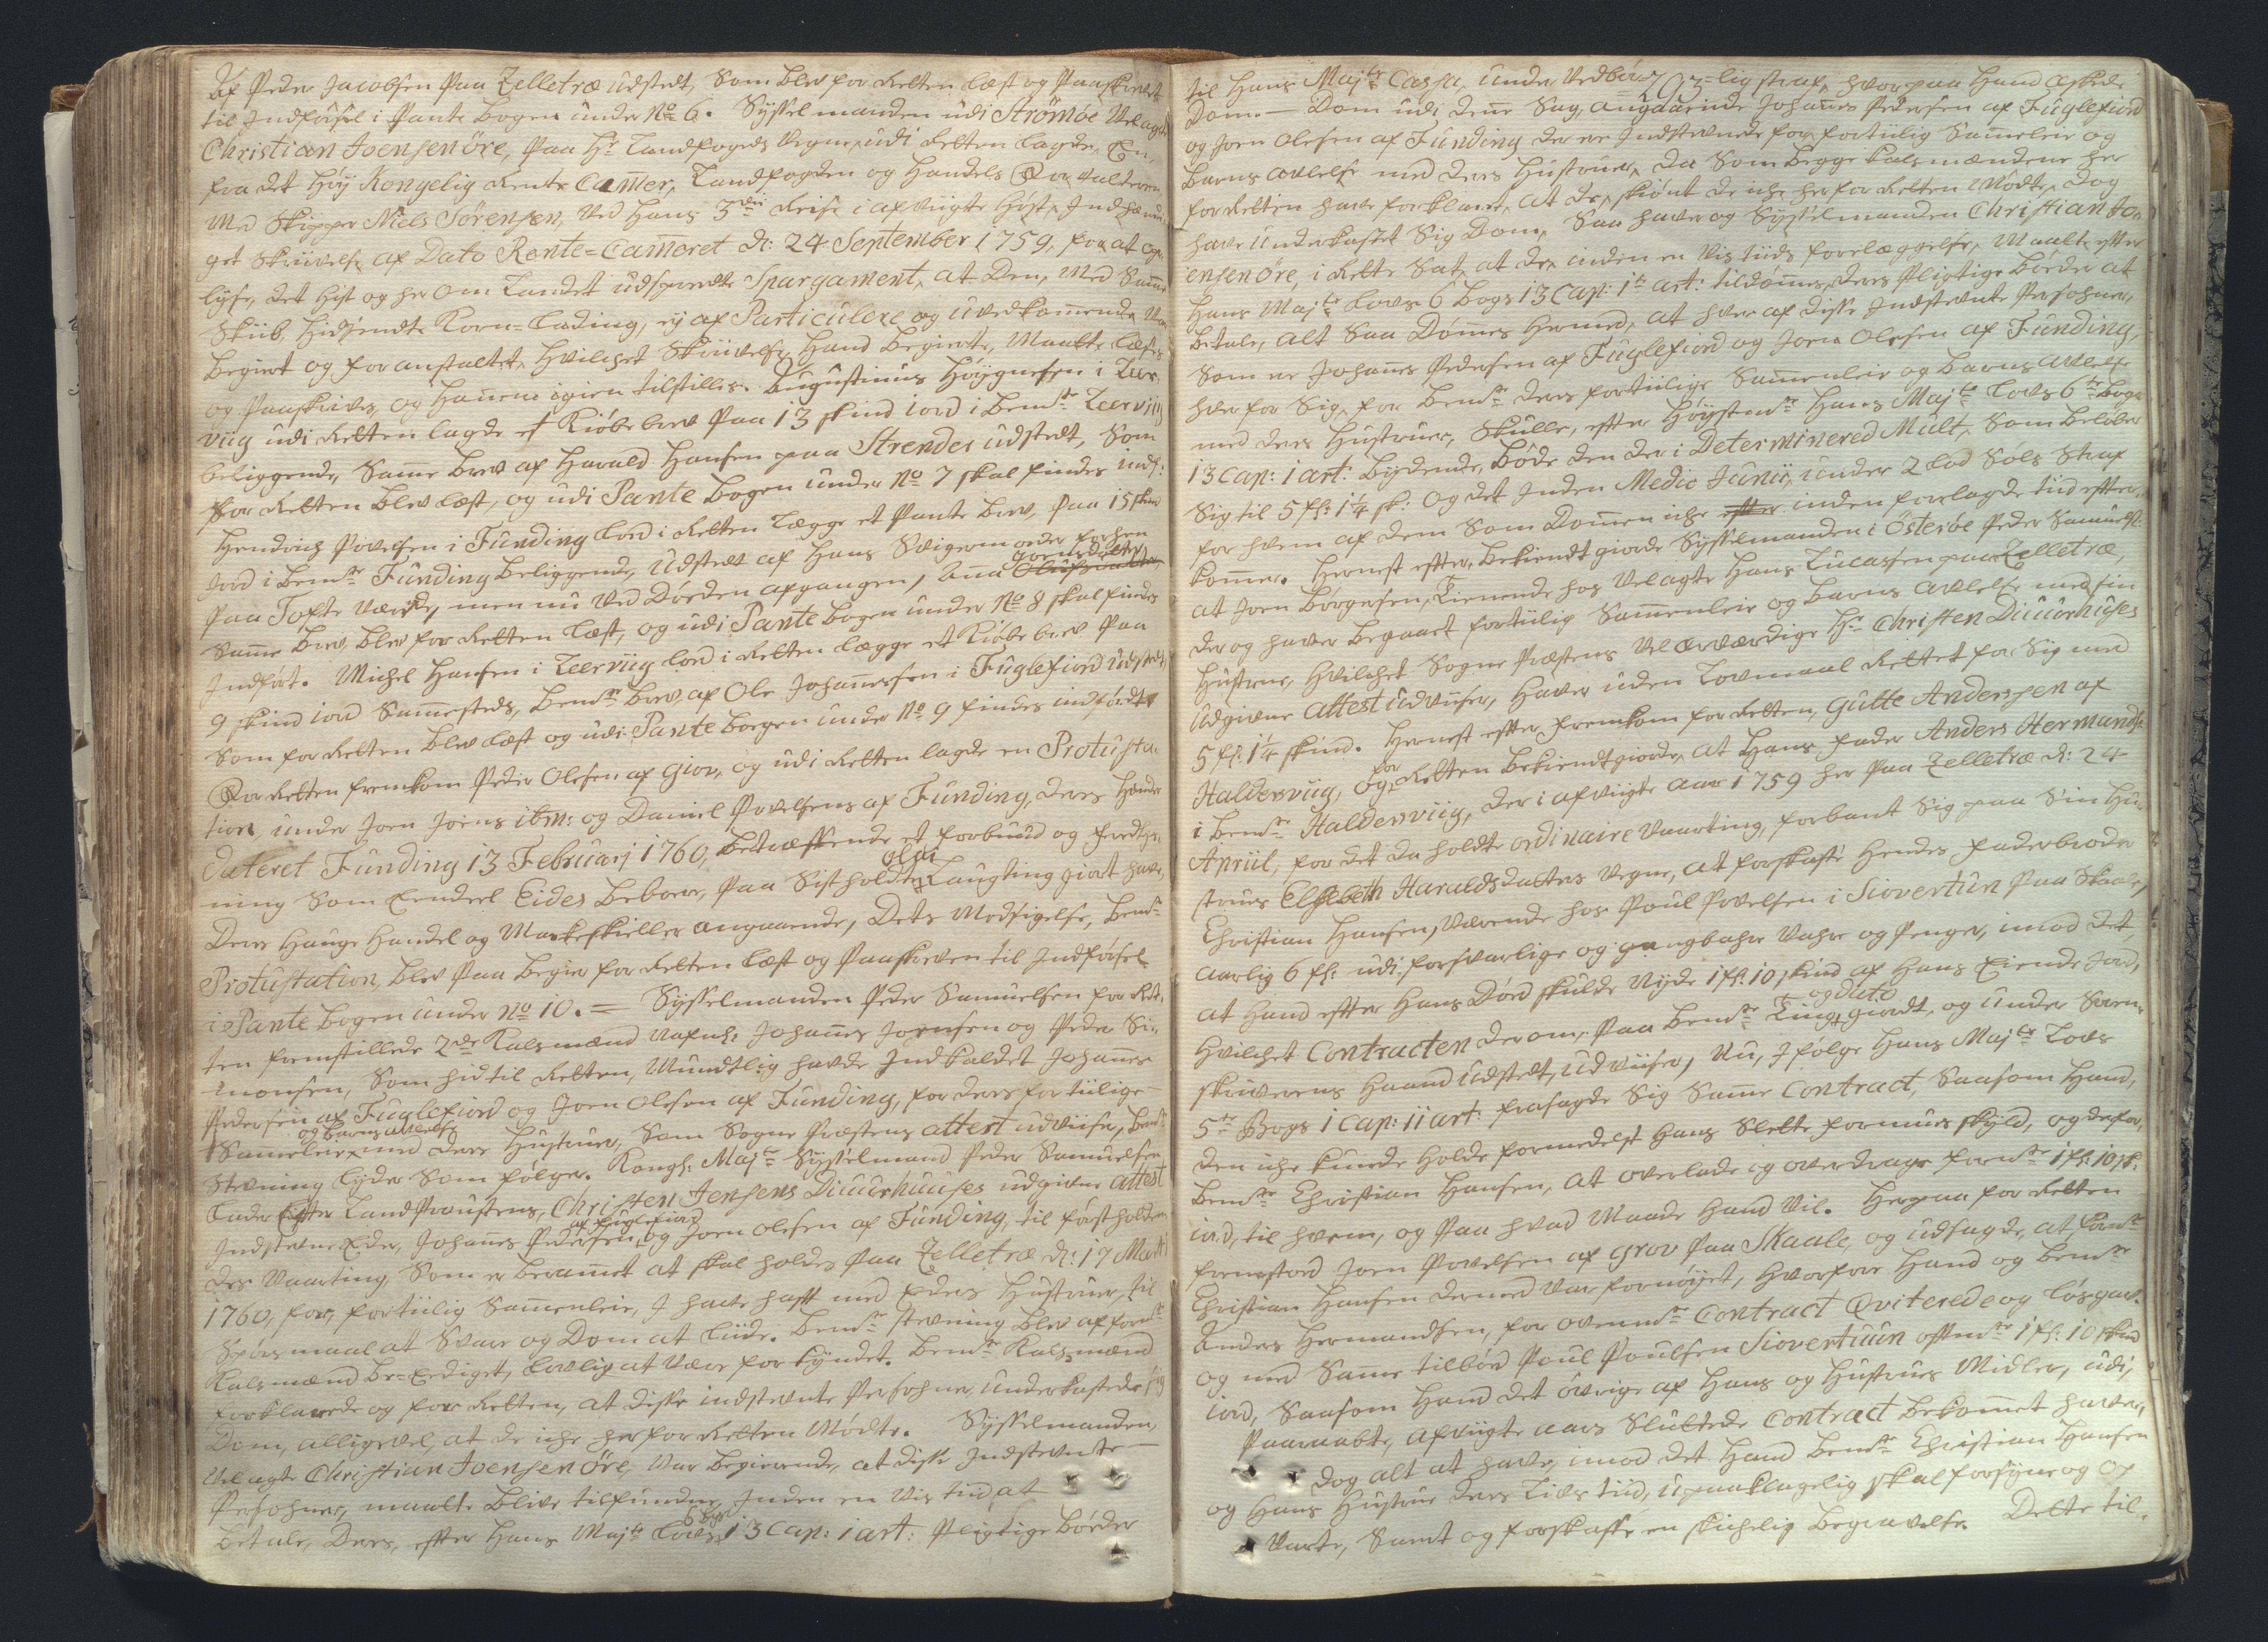 Af Peder Jacobsen paa Zelletræ udstedt, som blev for Retten læst og paaskrevet
til Indførsel i Pante Bogen under No 6. Sysselmanden udi Strømøe Velagte
Christian Joensen Öre, paa Hr Landfogeds Vegne, udi Retten lagde, En,
fra det Høy Kongelig Rente Camer, Landfogden og Handels Forvalteren
med Skipper Niels Sörensen, ved Hans 3die Reise i afvigte Høst, Indhændi-
get Skrivelse af Dato Rente-Cameret d: 24 September 1759, for at op-
lyse, det hist og her om Landet udspredte Spargament, at den, med Samme
Skib, hidsendte Korn-Lading, ej af Particulere og uvedkommende var
begiert og foranstaltet, hvilchet Skrivelse hand begierte, maatte læses
og paaskrives, og hannem igien tilstilles. Augustinus Höygnesen i Leer-
viig udi Retten lagde et Kiøbebrev paa 13 skind iord i bemte Leerviig
beliggende, Samme brev af Harald Hansen paa Strender udstedt, som
for Retten blev læst, og udi Pante bogen under No 7 skal findes indf:
Hendrich Povelsen i Funding lod i Retten lægge et Pante brev, paa 15 skind
Jord i bemte Funding beliggende, udstedt af Hans Svigermoder forhen
paa Tofte værende, men nu ved Døden afgangen, Anna Joensdatter
Samme brev blev for Retten læst, og udi Pante bogen under No 8 skal findes
Indført. Michel Hansen i Leerviig lod i Retten lægge et Kiøbebrev paa
9 skind iord Sammesteds, bemte brev, af Ole Johannessen i Fuglefiord udstedt,
som for Retten blev læst og udi Pante bogen under No 9 findes indførdt.
For Retten fremkom Peder Olesen af Giov, og udi Retten lagde en Protesta-
tion, under Joen Joens ibm: og Daniel Povelsens af Funding, deres Hænder
dateret Funding 13 Februarj 1760, betræffende et forbund og fredly-
ning som Eendeel Eides beboere, paa sist holdte Laugting giort have,
deres Hauge Handel og Markeskieller angaaende, dets Modsigelse, bemte
Protestation, blev paa begier for Retten læst og paaskreven til Indførsel
i Pante bogen under No 10. = Sysselmanden Peder Samuelsen for Ret-
ten fremstillede 2de Kalsmænd nafnl: Johannes Joensen og Peder Si-
monsen, som hid til Retten, Mundtlig havde Indkaldet Johannes
Pedersen af Fuglefiord og Joen Olesen af Funding, for deres fortiilige
Sammeleie og barns avlelse med deres Hustruer, som Sogne Præstens attest udviise, bemte
Stevning lyder som følger. Kongl: Majts Sysselmand Peder Samuelsen
Giør Eftter Land Proustens, Christen Jensens Diuurhuuses udgivne attest
Indstevne Eder, Johannes Pedersen af Fuglefiord og Joen Olesen af Funding, til først holden-
des Vaarting, som er berammet at skal holdes paa Zelletræ d: 17 Martj
1760, for, fortiilig Sammenleie, I have hafft med Eders Hustruer, til
Spørsmaal at svare og Dom at lide. bemte Stevning blev af form:te
Kalsmænd be-Eediget, lovlig at være forkyndet. bemte Kalsmænd
forklarede og for Retten, at disse indstevnte Persohner, underkastede sig
Dom, alligevel, at de iche her for Retten mødte. Sysselmanden
Velagte Christian Joensen Öre, var begierende, at disse Indstevnte
Persohner, maatte blive tilfunden, Inden en vis tiid at
betale, deres, efter Hans Majts Lovs 6 bogs 13 Cap: 1 art: pligtige bøder
293
til Hans Majts Cassa, under vedbør-lig straf, hvorpaa hand æskede
Dom. — Dom udi denne Sag, angaaende Johannes Pedersen af Fuglefiord
og Joen Olesen af Funding der ere Indstevnede for fortiilig Sammeleie og
barns avlelse med deres Hustruer, da som begge kalsmændene her
for Retten have forklaret, at de, skiønt de iche her for Retten mødte, dog
have underkastet sig Dom, saa haver og Sysselmanden Christian Jo-
ensen Öre, i Rette sat, at de, inden en vis tiids forelæggelse, maatte efter
Hans Majts Lovs 6 bogs 13 Cap: 1te art: tildømmes, deres pligtige bøder at
betale, alt saa dømes hermed, at hver af disse Indstevnte Persohner,
som er Johannes Pedersen af Fuglefiord og Joen Olesen af Funding,
hver for sig, for bemte deres fortiilige Sammenleie og barns avlelse
med deres Hustruer, skulle, efter Høystbemte Hans Majts Lovs 6te bogs
13 Cap: 1 art: bydende, bøde den der i Determinered Mult, som beløber
sig til 5 fl: 1¼ sk: og det Inden Medio Junii, under 2 lod Sølv straf
for hvem af dem som Dommen iche efter inden forelagde tiid efter-
kommer. Hernest efter, bekiendtgiorde Sysselmanden i Österöe Peder Samuelss:
at Joen Børgesen, tienende hos Velagte Hans Lucassen paa Zelletræ,
der og haver begaaet fortiilig Sammenleie og barns avlelse med sin
Hustrue, hvilchet Sogne Præstens Vel ærværdige Hr Christen Diuurhuses
udgivne attest udviiser, haver uden Lovmaal Rettet for sig med
5 fl: 1¼ skind. Hernest efter, fremkom for Retten, Gutte Andersen af
Haldersviig, og for Retten bekiendtgiorde, at Hans fader Anders Hermands:
i bemte Haldersviig, der i afvigte Aar 1759 her paa Zelletræ d: 24
Apriil, for det da holdte ordinaire Vaarting, forbant sig paa sin Hu-
strues Elsebeth Haraldsdatters Vegne, at forskaffe hendes faderbroder
Christian Hansen, værende hos Poul Povelsen i Siovertün paa Skaale,
aarlig 6 fl: udi forsvarlige og gangbahre Vahre og Penger, imod det,
at hand efter Hans Død skulde nyde 1 fl: 10 skind af Hans Eiende Jord,
hvilchet Contracten derom, paa bemte Ting og dato giordt, og under Soren-
skriverens Haand udstedt, udviiser, Nu, I følge Hans Majts Lovs
5te Bogs 1 Cap: 11 art: frasagde sig Samme Contract, saasom hand,
den iche kunde holde formedelst Hans slette formues skyld, og derfor,
bemte Christian Hansen, at overlade og overdrage formte 1 fl: 10 sk:
iord, til hvem, og paa hvad Maade hand vil. Herpaa for Retten
fremstod Joen Povelsen af Grov paa Skaale, og udsagde, at formte
Christian Hansen dermed var fornøyet, hvorfore hand og bemte
Anders Hermandsen, for ovenmte Contract Qviterede og løsgav.
og med Samme tilbød Poul Poulsen Siovertuun oftmte 1 fl: 10 skind
iord, saasom hand det øvrige af Hans og Hustrues Midler, udi,
Paaraabte, afvigte aars Sluttede Contract bekommet haver,
dog alt at have, imod det hand bemte Christian Hansen
og Hans Hustrue deres Livs tiid, upaaklagelig skal forsyne og op-
varte, samt og forskaffe en skichelig begravelse. Dette til-